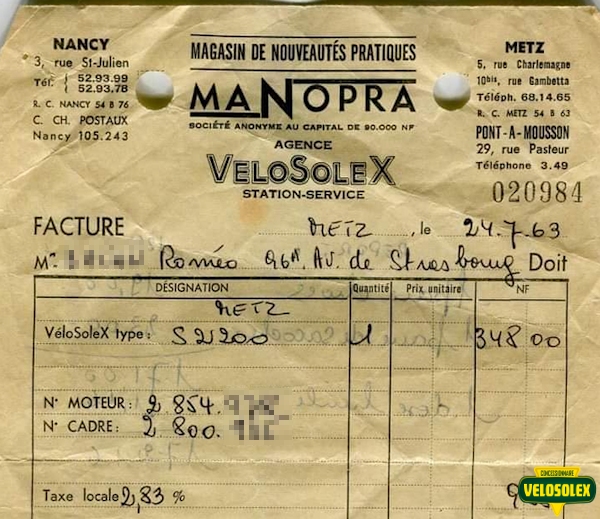 NANCY
3, rue St-Julien
Tél. { 52.93.99
52.93.78
R. C. NANCY 54 B 76
C. CH. POSTAUX
Nancy 105.243
MAGASIN DE NOUVEAUTÉS PRATIQUES
MANOPRA
SOCIÉTÉ ANONYME AU CAPITAL DE 90.000 NF
AGENCE
VELOSOLEX
STATION-SERVICE
METZ
5, rue Charlemagne
10bis, rue Gambetta
Téléph. 68.14.65
R. C. METZ 54 B 63
PONT-A-MOUSSON
29, rue Pasteur
Téléphone 3.49
020984
FACTURE METZ, le 24.7.63
Mr. Roméo 96A Av. de Strasbourg Doit
DÉSIGNATION Quantité Prix unitaire NF
METZ
VéloSoleX type : S2200 1 348 00
N° MOTEUR : 2 854.
N° CADRE : 2 800.
Taxe locale 2,83 % 9
CONCESSIONNAIRE
VELOSOLEX